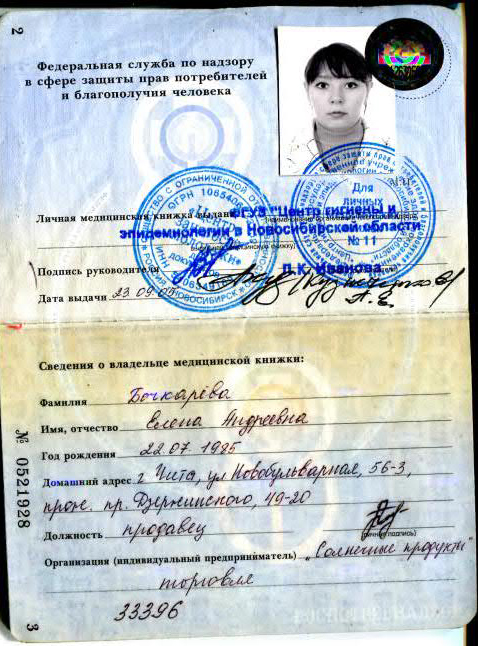 2
Федеральная служба по надзору
в сфере защиты прав потребителей
и благополучия человека
Личная медицинская книжка выдана
ФГУЗ "Центр гигиены и
эпидемиологии в Новосибирской области
Для
личных
№ 11
Л.К. Иванова
Подпись руководителя
Дата выдачи 23.09.05
Сведения о владельце медицинской книжки:
Фамилия Бочкарёва
Имя, отчество Елена Андреевна
Год рождения 22.07.1985
Домашний адрес г Чита, ул Новобульварная, 56-3,
прож. пр. Дзержинского, 49-20
Должность продавец
(личная подпись)
Организация (индивидуальный предприниматель) "Солнечные продукты"
торговля
33396
№ 0521928
3